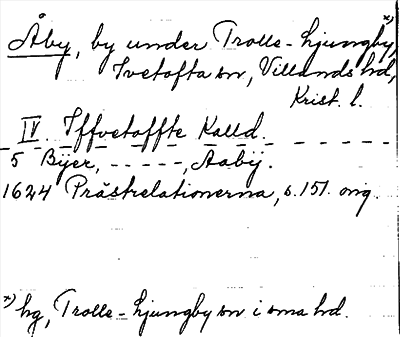 Åby, by under Trolle-Ljungby,ˣ⁾
Ivetofta sn, Villands hd,
Krist. l.
IV. Iffvetoffte Kalld.
5 Byer, - - - - -, Aabÿ.
1624 Prästrelationerna, s. 151. orig.
ˣ⁾ hg, Trolle-Ljungby sn i sma hd.